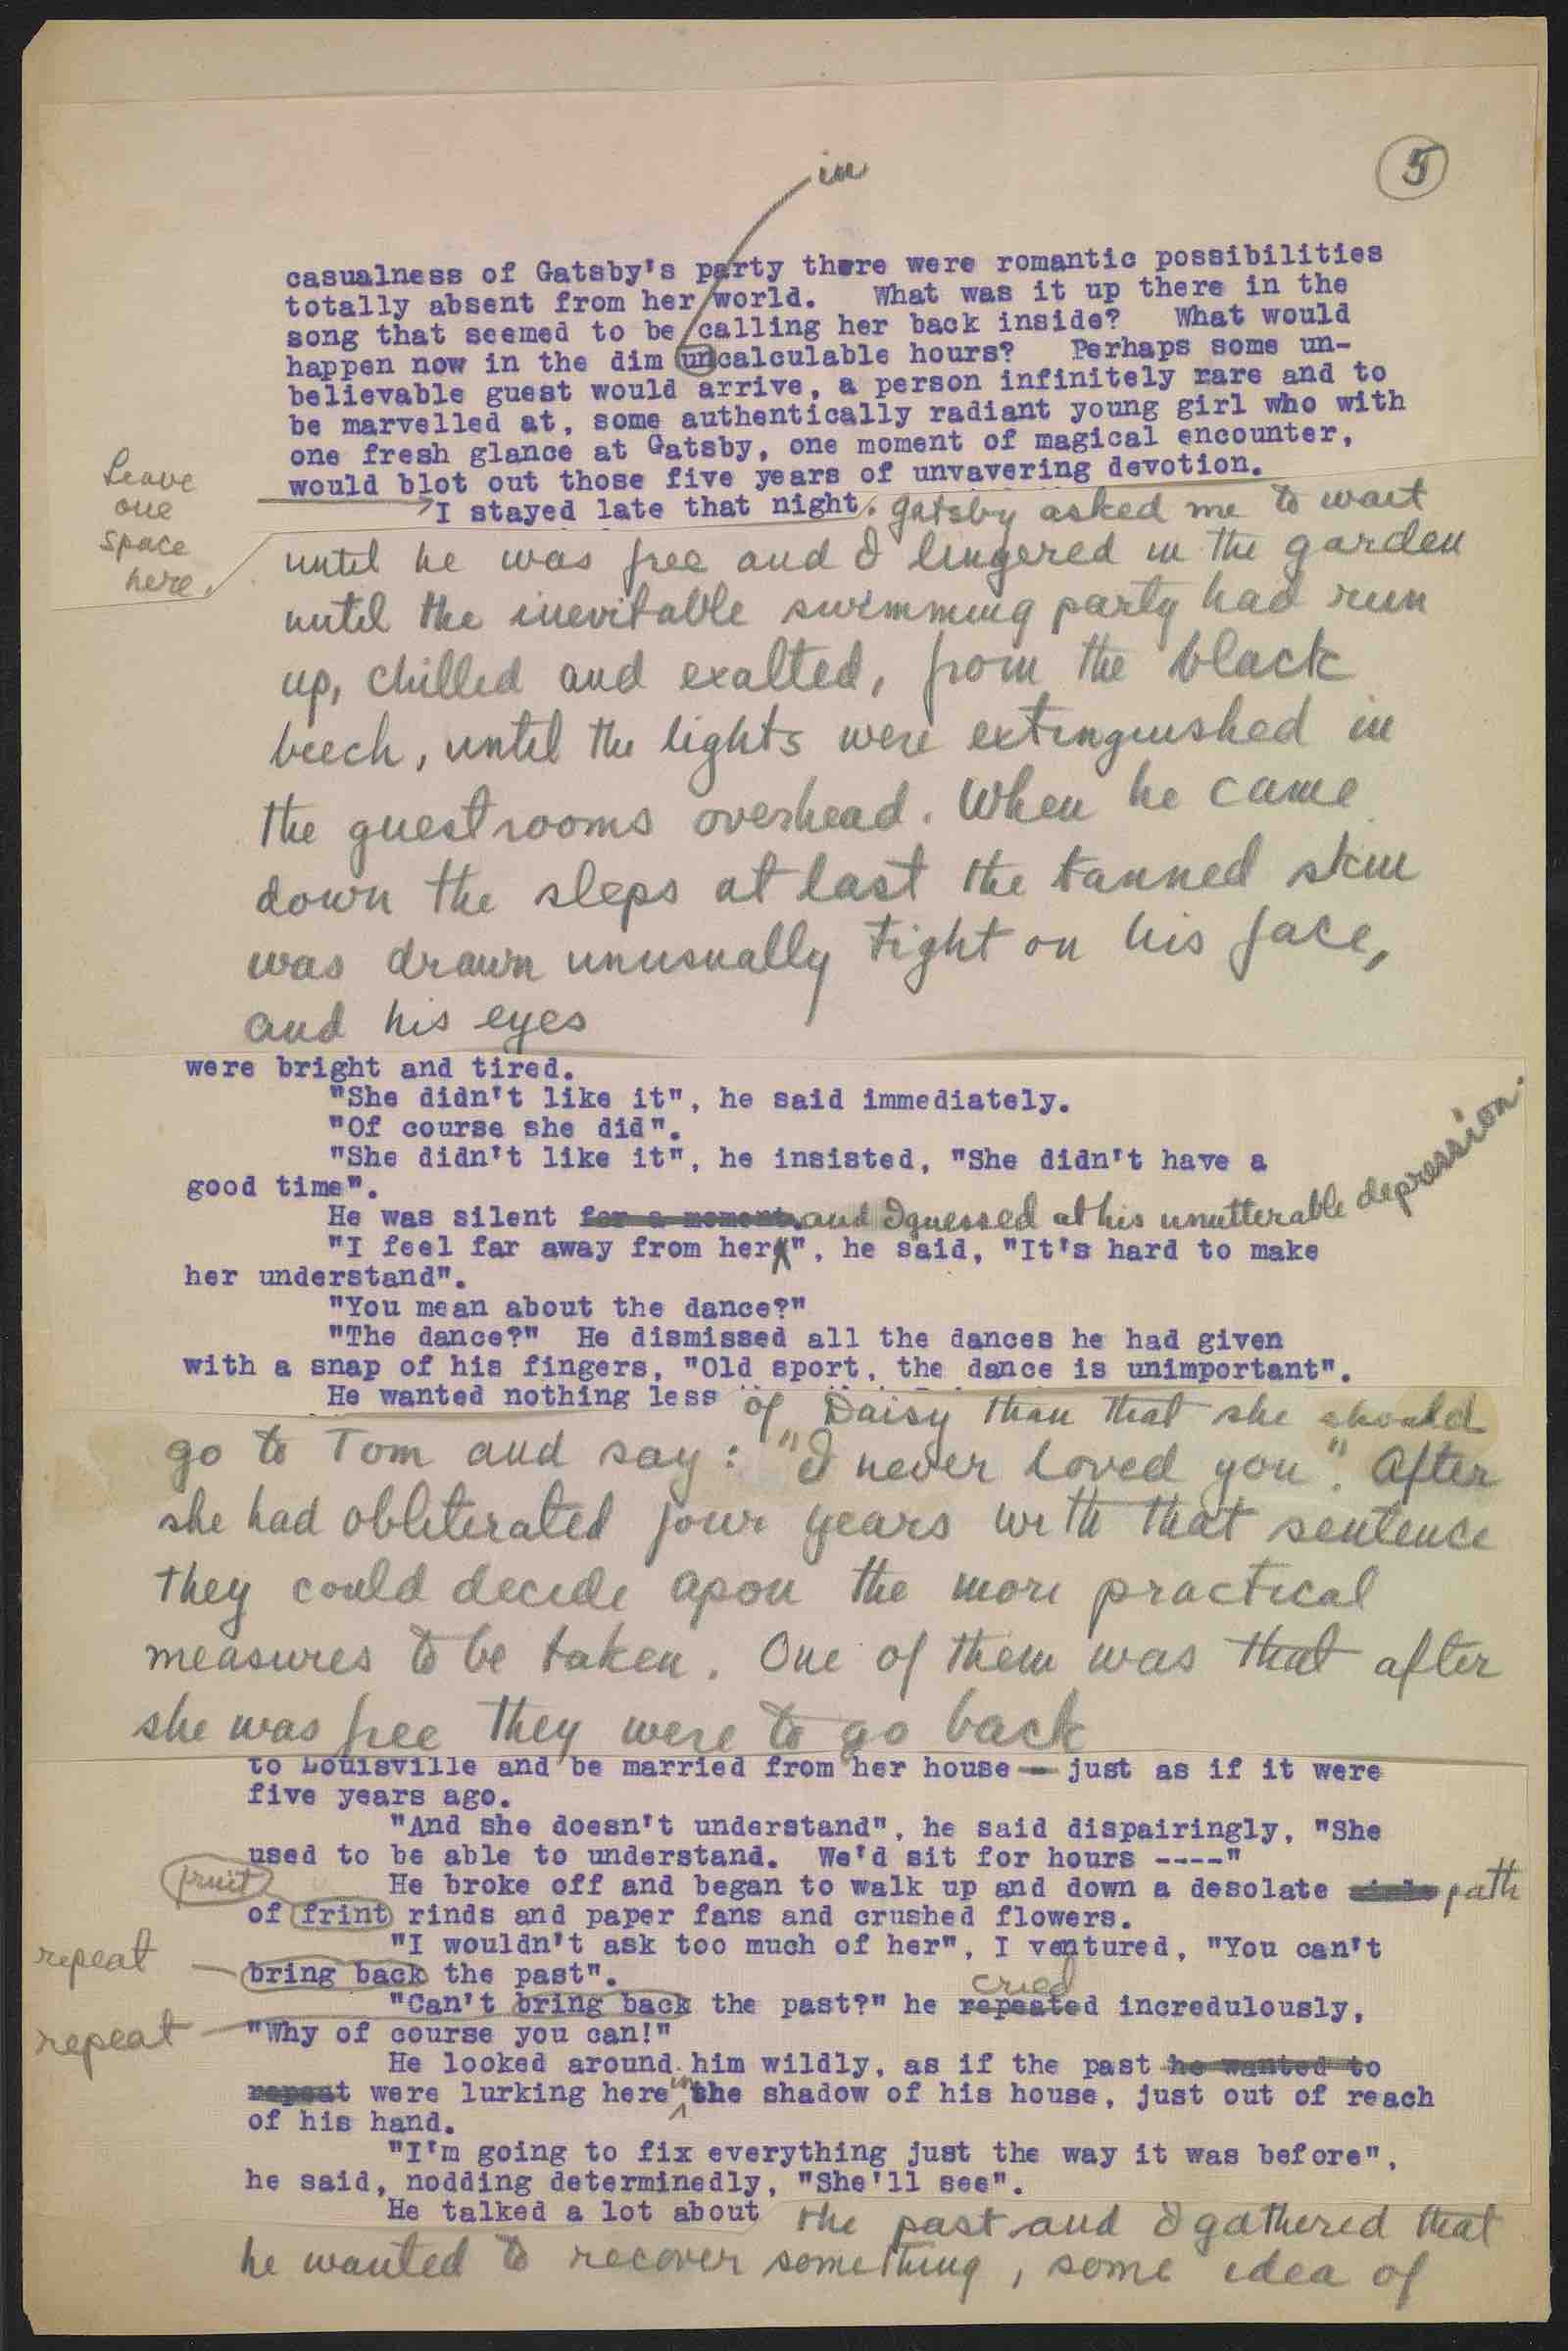 in
5
casualness of Gatsby's party there were romantic possibilities
totally absent from her world. What was it up there in the
song that seemed to be calling her back inside? What would
happen now in the dim uncalculable hours? Perhaps some un-
believable guest would arrive, a person infinitely rare and to
be marvelled at, some authentically radiant young girl who with
one fresh glance at Gatsby, one moment of magical encounter,
would blot out those five years of unvavering devotion.
Leave
one
space
here.
I stayed late that night. Gatsby asked me to wait
until he was free and I lingered in the garden
until the inevitable swimming party had run
up, chilled and exalted, from the black
beech, until the lights were extinguished in
the guest rooms overhead. When he came
down the sleps at last the tanned skin
was drawn unusually tight on his face,
and his eyes
were bright and tired.
"She didn't like it", he said immediately.
"Of course she did".
"She didn't like it", he insisted, "She didn't have a
good time".
He was silent for a moment. and I guessed at his unutterable depression.
"I feel far away from her", he said, "It's hard to make
her understand".
"You mean about the dance?"
"The dance?" He dismissed all the dances he had given
with a snap of his fingers, "Old sport, the dance is unimportant".
He wanted nothing less of Daisy than that she should
go to Tom and say: "I never loved you". After
she had obliterated four years with that sentence
they could decide apon the more practical
measures to be taken. One of them was that after
she was free they were to go back
to Louisville and be married from her house — just as if it were
five years ago.
"And she doesn't understand", he said dispairingly, "She
used to be able to understand. We'd sit for hours ----"
fruit
He broke off and began to walk up and down a desolate path
of frint rinds and paper fans and crushed flowers.
"I wouldn't ask too much of her", I ventured, "You can't
repeat
bring back the past".
cried
"Can't bring back the past?" he repeated incredulously,
repeat
"Why of course you can!"
He looked around him wildly, as if the past he wanted to
repeat were lurking here in the shadow of his house, just out of reach
of his hand.
"I'm going to fix everything just the way it was before",
he said, nodding determinedly, "She'll see".
He talked a lot about the past and I gathered that
he wanted to recover something, some idea of